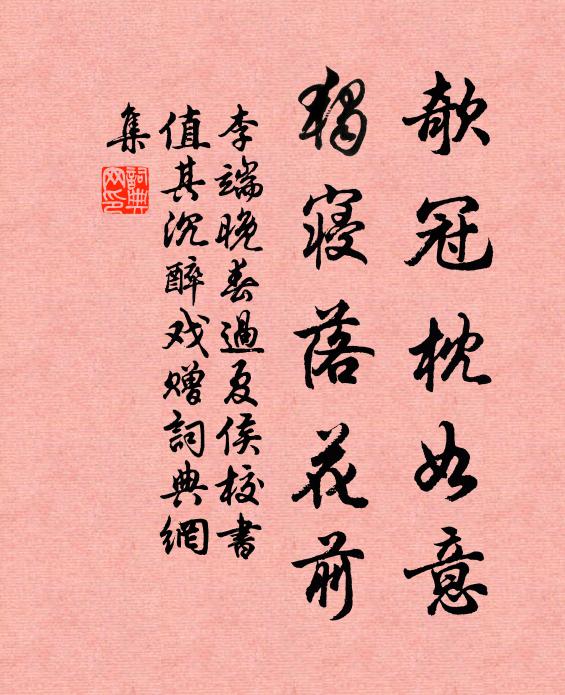 欹冠枕如意
獨寢落花前
李端晚春過夏侯校書
值其沉醉戏赠詞典網
集
詞典
网印